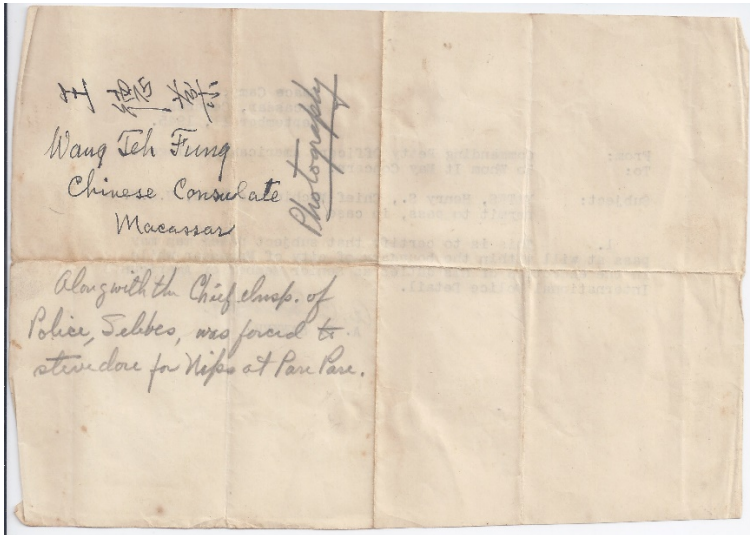 王德棻
Wang Teh Fung
Chinese Consulate
Macassar
Photography
Along with the Chief Insp. of
Police, Selebes, was forced to
stevedore for Nips at Pare Pare.